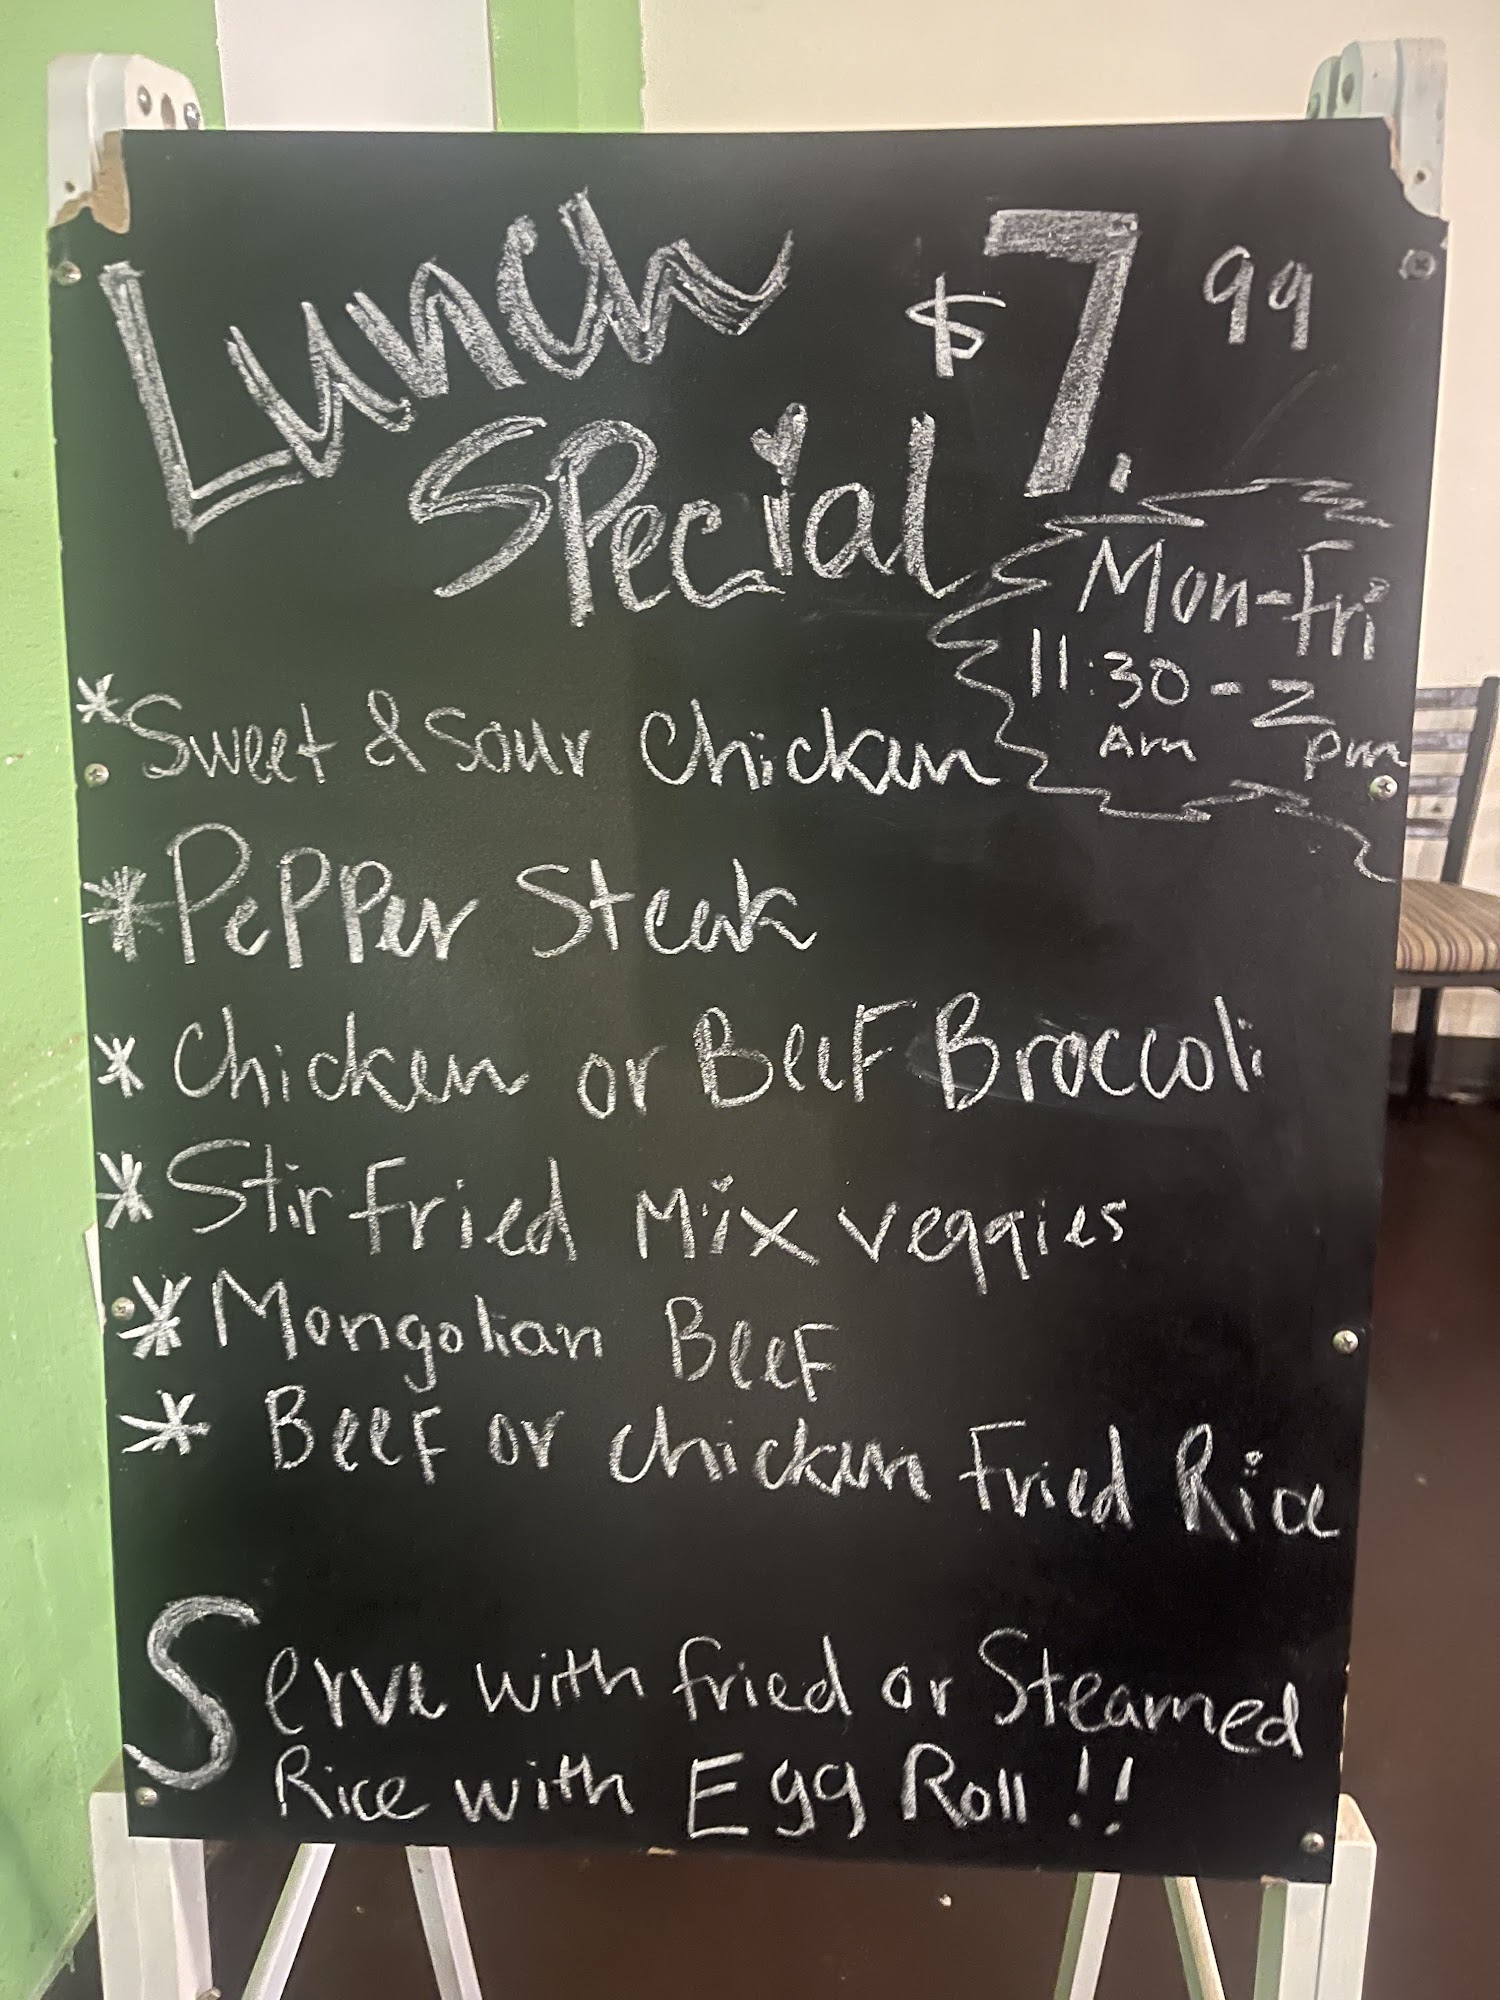 Lunch $7.99
Special
Mon-Fri
11:30 - 2
Am pm
*Sweet & Sour Chicken
*Pepper Steak
*Chicken or Beef Broccoli
*Stir Fried Mix veggies
*Mongolian Beef
*Beef or Chicken Fried Rice
Serve with fried or Steamed
Rice with Egg Roll !!